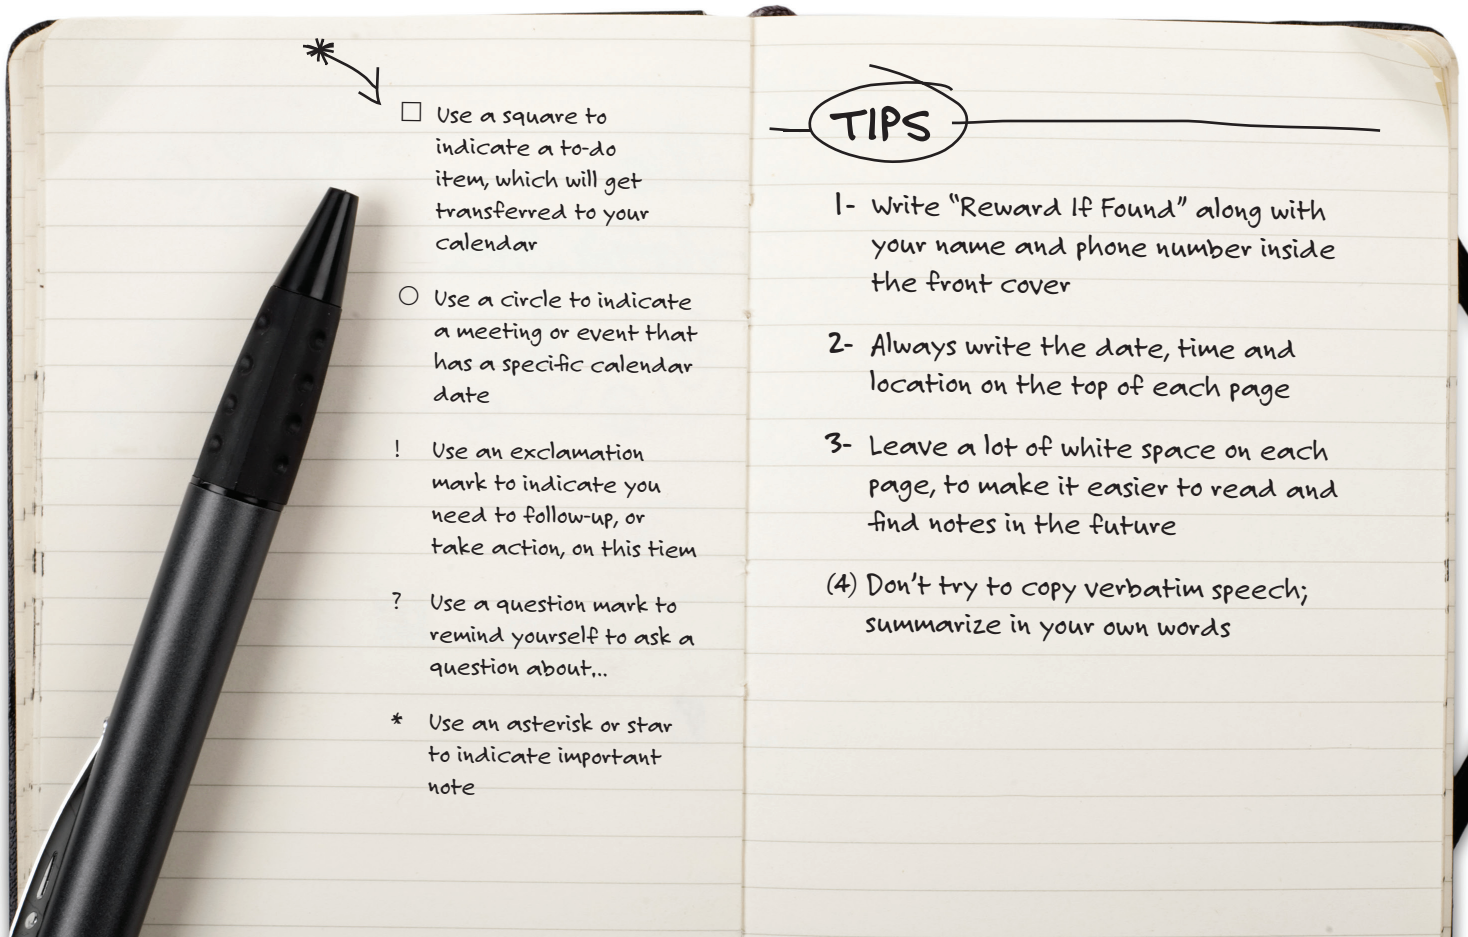 *
□ Use a square to
indicate a to-do
item, which will get
transferred to your
calendar
○ Use a circle to indicate
a meeting or event that
has a specific calendar
date
! Use an exclamation
mark to indicate you
need to follow-up, or
take action, on this tiem
? Use a question mark to
remind yourself to ask a
question about...
* Use an asterisk or star
to indicate important
note
TIPS
1- Write "Reward If Found" along with
your name and phone number inside
the front cover
2- Always write the date, time and
location on the top of each page
3- Leave a lot of white space on each
page, to make it easier to read and
find notes in the future
(4) Don't try to copy verbatim speech;
summarize in your own words